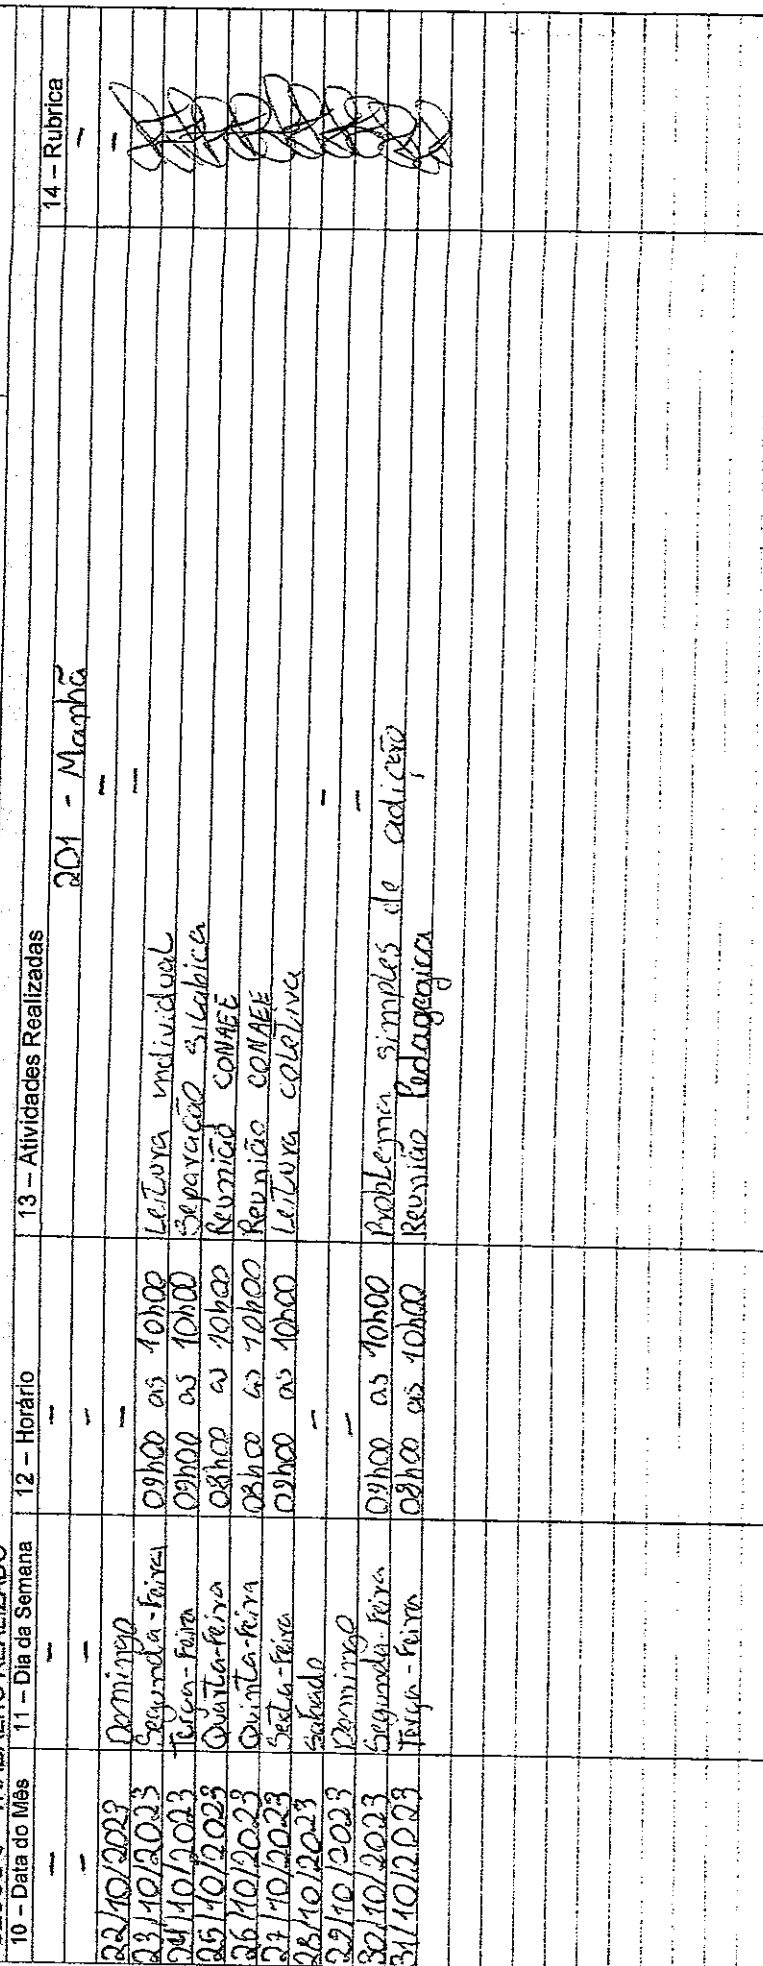 TRABALHO REALIZADO
10 – Data do Mês 11 – Dia da Semana 12 – Horário 13 – Atividades Realizadas 14 – Rubrica
– – – 201 - Manhã –
– – – – –
22/10/2023 Domingo – –
23/10/2023 Segunda-Feira 09h00 as 10h00 Leitura individual
24/10/2023 Terça-Feira 09h00 as 10h00 Separação silabica
25/10/2023 Quarta-Feira 08h00 as 10h00 Reunião CONAEE
26/10/2023 Quinta-Feira 08h00 as 10h00 Reunião CONAEE
27/10/2023 Sexta-Feira 09h00 as 10h00 Leitura coletiva
28/10/2023 Sabado – –
29/10/2023 Domingo – –
30/10/2023 Segunda-Feira 09h00 as 10h00 Problema simples de adição
31/10/2023 Terça-Feira 08h00 as 10h00 Reunião Pedagogica